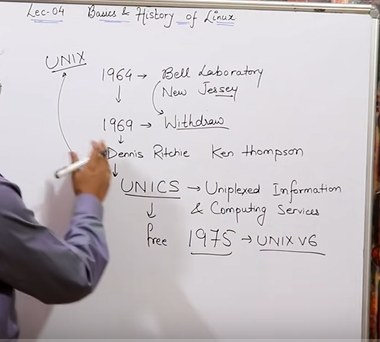 Lec-04 Basics & History of Linux
UNIX
1964 → Bell Laboratory
New Jersey
1969 → Withdraw
Dennis Ritchie Ken thompson
UNICS → Uniplexed Information
& Computing Services
free 1975 → UNIX V6